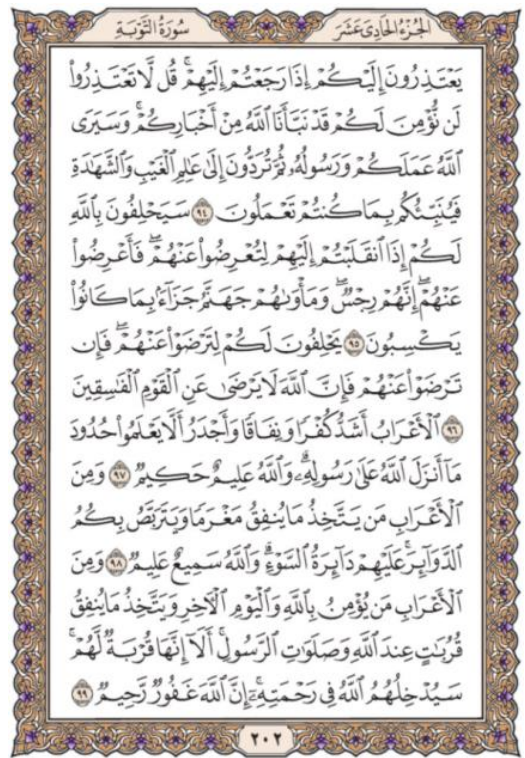 الجُزْءُ الحَادِىَ عَشَرَ سُورَةُ التَّوْبَةِ
يَعْتَذِرُونَ إِلَيْكُمْ إِذَا رَجَعْتُمْ إِلَيْهِمْ ۚ قُل لَّا تَعْتَذِرُوا۟
لَن نُّؤْمِنَ لَكُمْ قَدْ نَبَّأَنَا ٱللَّهُ مِنْ أَخْبَارِكُمْ ۚ وَسَيَرَى
ٱللَّهُ عَمَلَكُمْ وَرَسُولُهُۥ ثُمَّ تُرَدُّونَ إِلَىٰ عَٰلِمِ ٱلْغَيْبِ وَٱلشَّهَٰدَةِ
فَيُنَبِّئُكُم بِمَا كُنتُمْ تَعْمَلُونَ ٩٤ سَيَحْلِفُونَ بِٱللَّهِ
لَكُمْ إِذَا ٱنقَلَبْتُمْ إِلَيْهِمْ لِتُعْرِضُوا۟ عَنْهُمْ ۖ فَأَعْرِضُوا۟
عَنْهُمْ ۖ إِنَّهُمْ رِجْسٌ ۖ وَمَأْوَىٰهُمْ جَهَنَّمُ جَزَآءًۢ بِمَا كَانُوا۟
يَكْسِبُونَ ٩٥ يَحْلِفُونَ لَكُمْ لِتَرْضَوْا۟ عَنْهُمْ ۖ فَإِن
تَرْضَوْا۟ عَنْهُمْ فَإِنَّ ٱللَّهَ لَا يَرْضَىٰ عَنِ ٱلْقَوْمِ ٱلْفَٰسِقِينَ
٩٦ ٱلْأَعْرَابُ أَشَدُّ كُفْرًا وَنِفَاقًا وَأَجْدَرُ أَلَّا يَعْلَمُوا۟ حُدُودَ
مَآ أَنزَلَ ٱللَّهُ عَلَىٰ رَسُولِهِۦ ۗ وَٱللَّهُ عَلِيمٌ حَكِيمٌ ٩٧ وَمِنَ
ٱلْأَعْرَابِ مَن يَتَّخِذُ مَا يُنفِقُ مَغْرَمًا وَيَتَرَبَّصُ بِكُمُ
ٱلدَّوَآئِرَ ۚ عَلَيْهِمْ دَآئِرَةُ ٱلسَّوْءِ ۗ وَٱللَّهُ سَمِيعٌ عَلِيمٌ ٩٨ وَمِنَ
ٱلْأَعْرَابِ مَن يُؤْمِنُ بِٱللَّهِ وَٱلْيَوْمِ ٱلْءَاخِرِ وَيَتَّخِذُ مَا يُنفِقُ
قُرُبَٰتٍ عِندَ ٱللَّهِ وَصَلَوَٰتِ ٱلرَّسُولِ ۚ أَلَآ إِنَّهَا قُرْبَةٌ لَّهُمْ ۚ
سَيُدْخِلُهُمُ ٱللَّهُ فِى رَحْمَتِهِۦٓ ۗ إِنَّ ٱللَّهَ غَفُورٌ رَّحِيمٌ ٩٩
٢٠٢